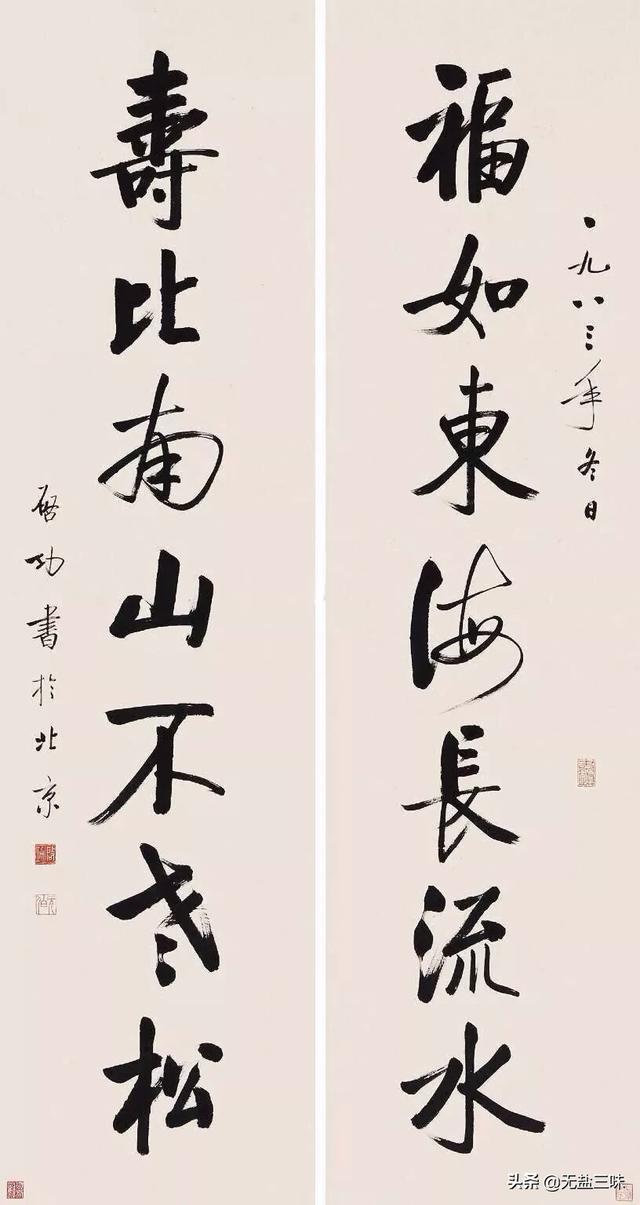 福如東海長流水
一九八三年冬日
壽比南山不老松
啓功書於北京
头条 @无盐三味